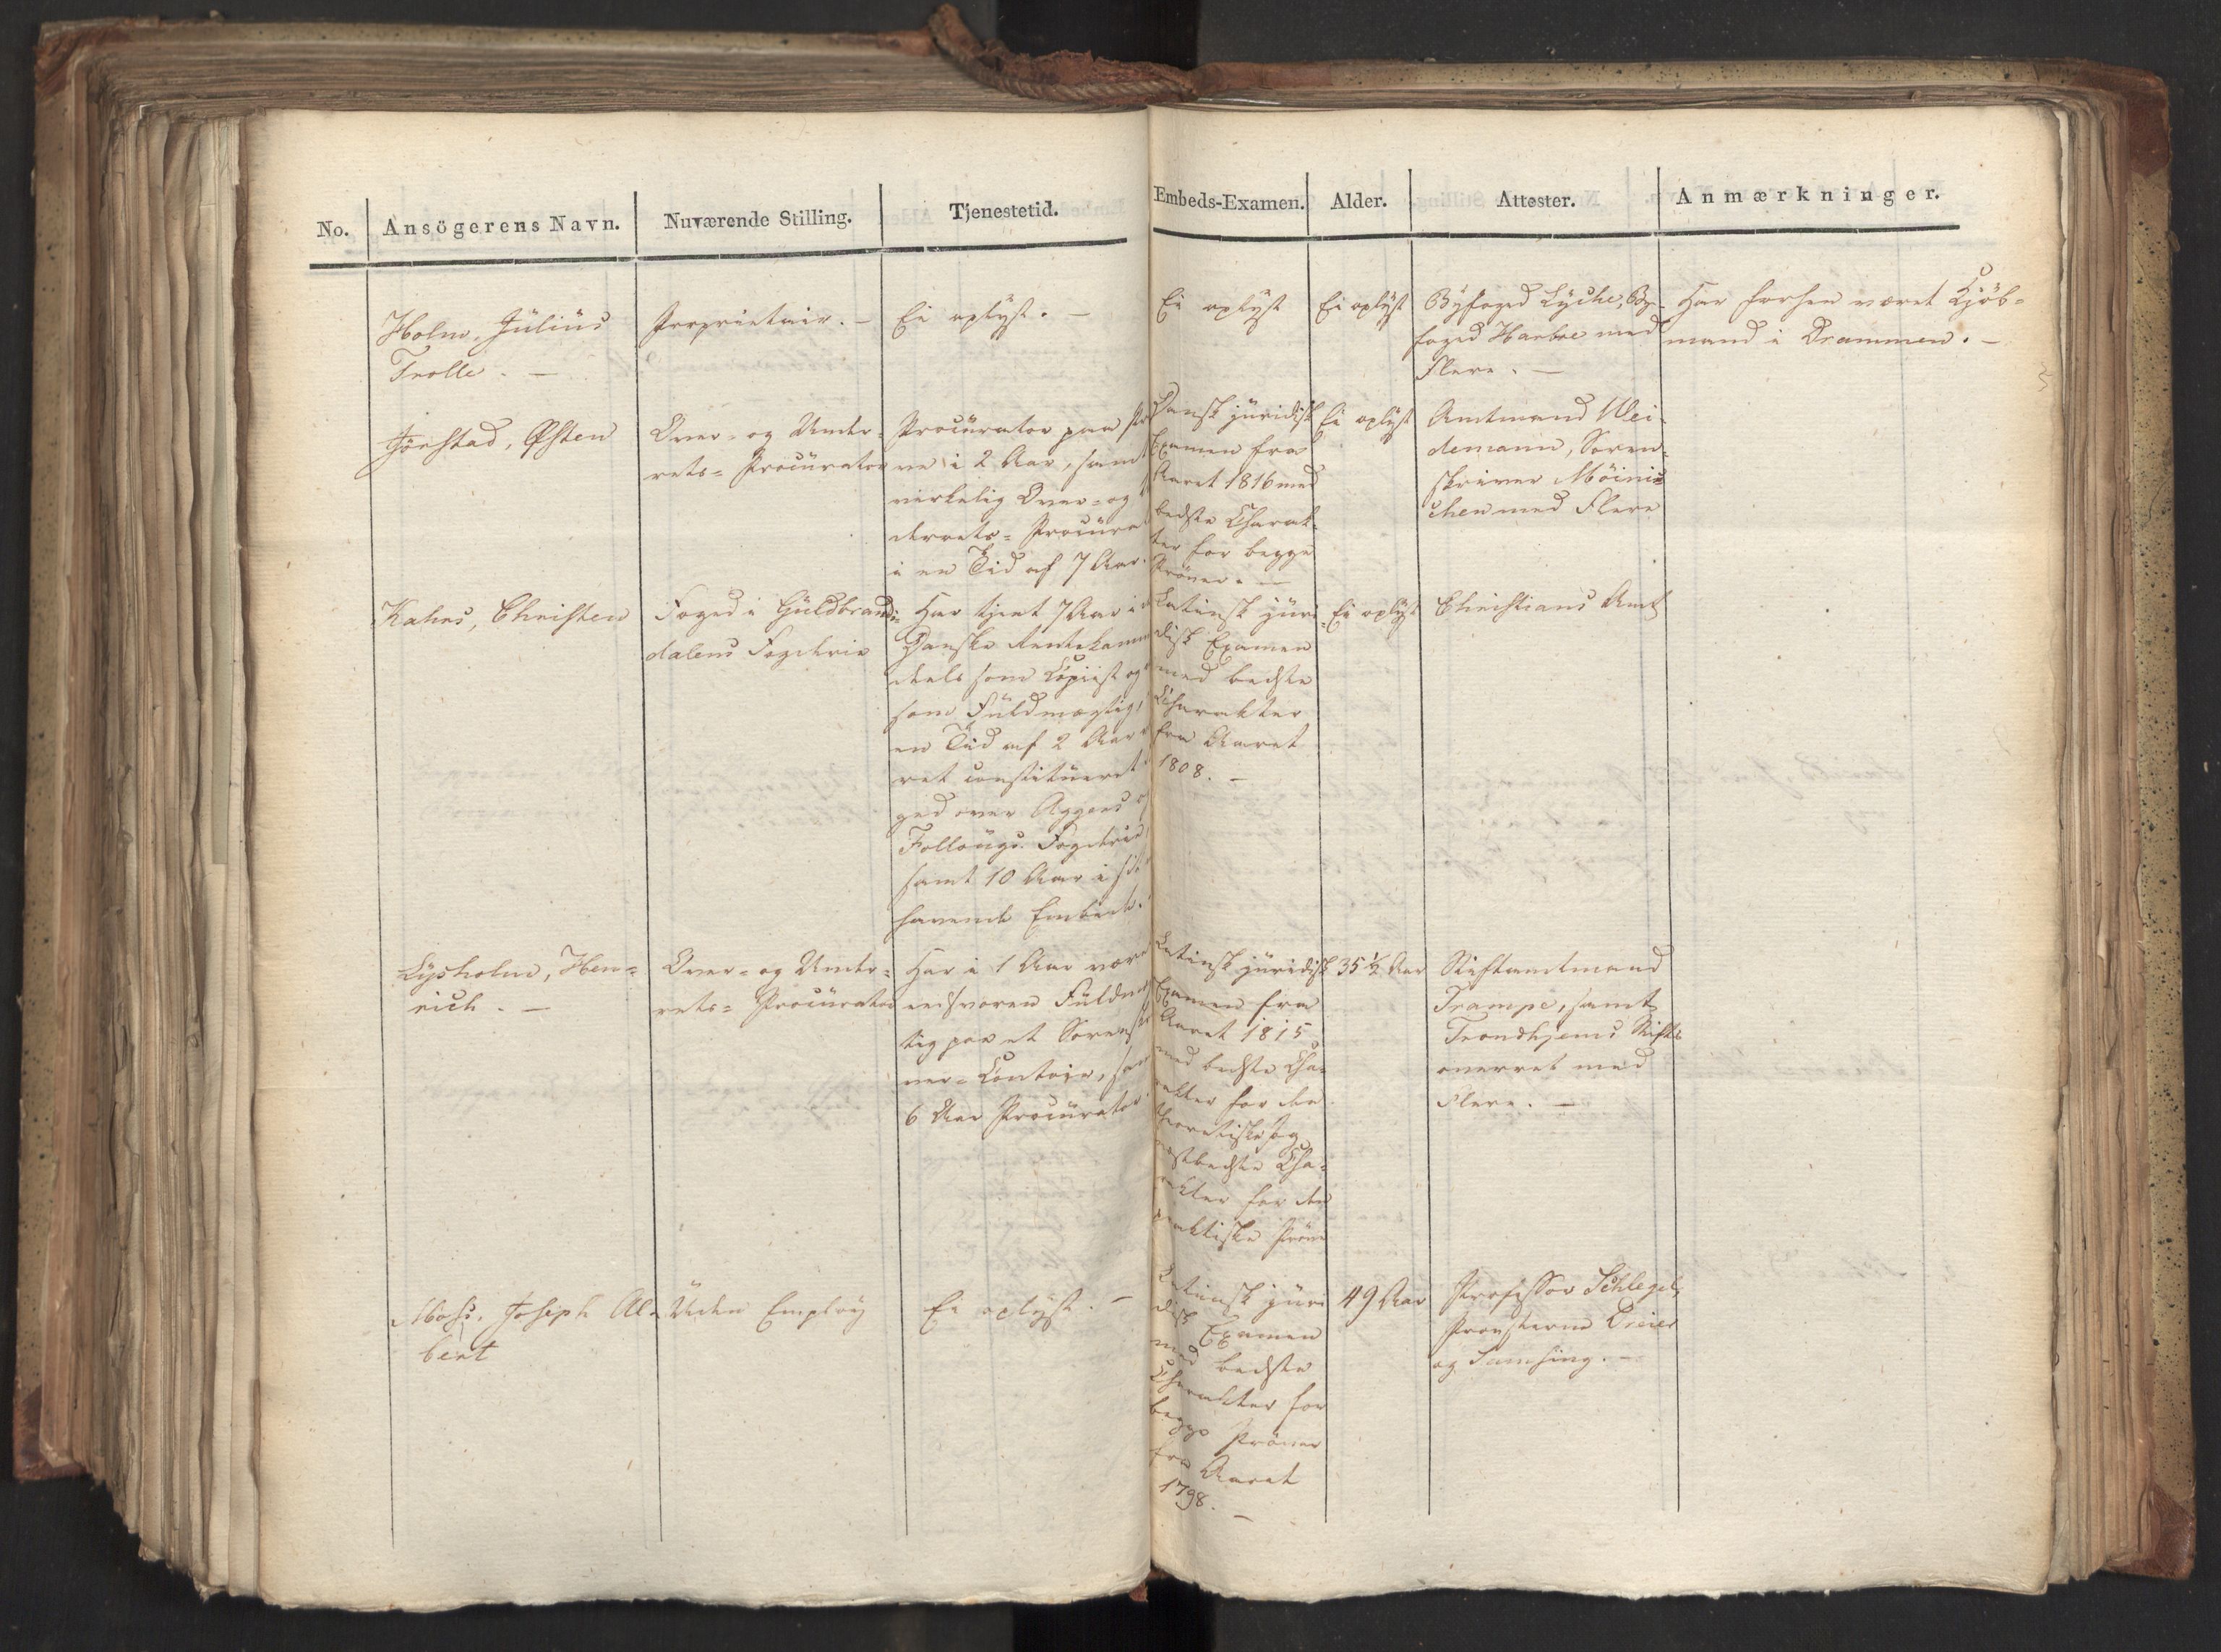 No.
Ansögerens Navn.
Nuværende Stilling.
Tjenestetid.
Embeds-Examen.
Alder.
Attester.
Anmærkninger.
Holm, Jülius
Trolle. —
Proprietair. —
Ei oplyst. —
Ei oplyst
Ei oplyst
Byfoged Lyche, By-
foged Harboe med
Flere. —
Har forhen været Kjöb=
mand i Drammen. —
Jörstad, Østen
Over- og Under-
rets= Procürator
Procürator paa Prö
ve i 2 Aar, samt
virkelig Over= og
derrets= Procüra
i en Tid af 7 Aar.
Dansk jüridisk
Examen fra
Aaret 1816 med
bedste Charak-
ter for begge
Pröver. —
Ei oplyst
Amtmand Wei-
demann, Soren-
skriver Möini=
chen med Flere
Kahrs, Christen
Foged i Güldbrands=
dalens Fogderie
Har tjent 7 Aar i
Danske Rentekamm
deels som Copiist og
som Füldmægtig,
en Tid af 2 Aar
ret constitueret
ged over Aggers
Follougs Fogderie,
samt 10 Aar i sit
havende Embede.
Latinsk jüri-
disk Examen
med bedste
Charakter
fra Aaret
1808. —
Ei oplyst
Christians Amt
Lysholm, Hen=
rich. —
Over- og Under-
rets= Procürator
Har i 1 Aar være
eedsvoren Füldmæ
tig paa et Sorensk
ver= Contoir, sam
6 Aar Procürator.
Latinsk jüridisk
Examen fra
Aaret 1815
med bedste Cha=
rakter for den
theoretiske og
næstbedste Cha=
rakter for den
praktiske Pröve
35 ½ Aar
Stiftamtmand
Trampe, samt
Trondhjems Stifts
overret med
Flere. —
Moss, Joseph Al=
bert
Uden Employ
Ei oplyst. —
Latinsk jüri
disk Examen
med bedste
Charakter for
begge Pröver
fra Aaret
1798. —
49 Aar
Professor Schlegel,
Provsterne Dreier
og Samsing. —